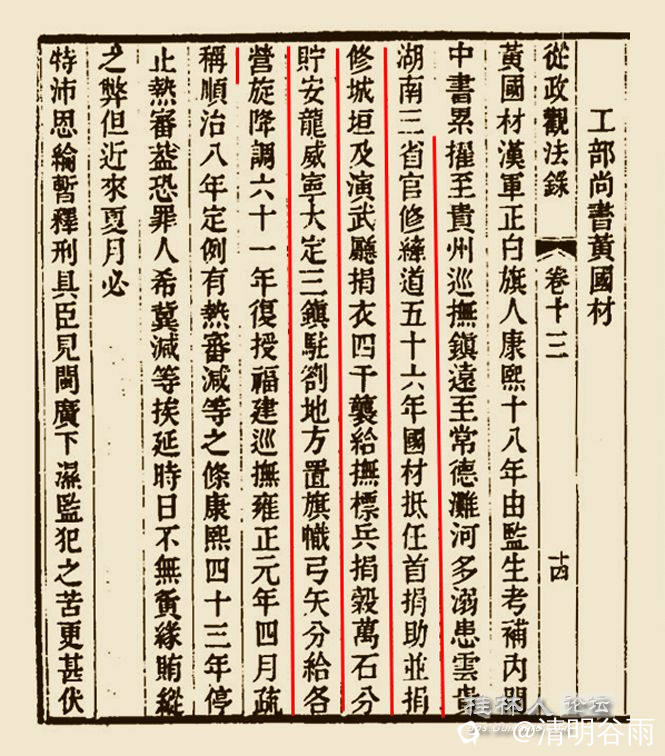 工部尚書黃國材
從政觀法錄 卷十三 十四
黃國材漢軍正白旗人康熙十八年由監生考補內閣
中書累擢至貴州巡撫鎮遠至常德灘河多溺患雲貴
湖南三省官修縴道五十六年國材抵任首捐助並捐
修城垣及演武廳捐衣四千襲給撫標兵捐穀萬石分
貯安龍威寧大定三鎮駐劄地方置旗幟弓矢分給各
營旋降調六十一年復授福建巡撫雍正元年四月疏
稱順治八年定例有熱審減等之條康熙四十三年停
止熱審葢恐罪人希冀減等挨延時日不無夤緣賄縱
之弊但近來夏月必
特沛恩綸暫釋刑具臣見閩廣下濕監犯之苦更甚伏
桂林人 论坛
@清明谷雨